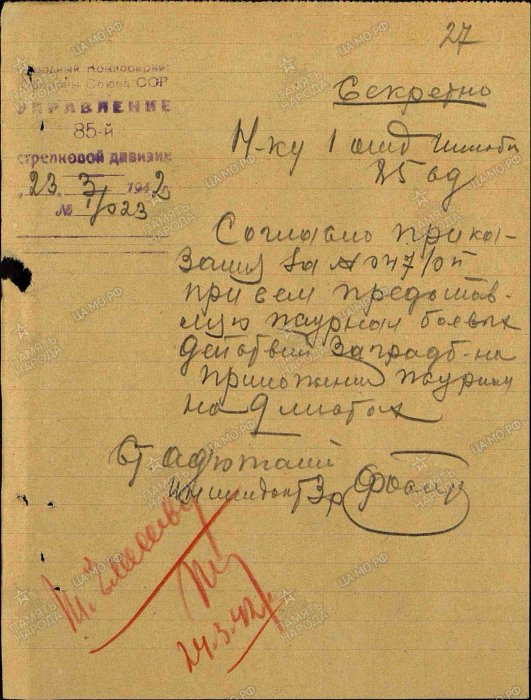 27
Народный Комиссариат
обороны Союза ССР
УПРАВЛЕНИЕ
85-й
стрелковой дивизии
23 3 1942
№ 1/023
Секретно
Н-ку 1 отд штаба
85 сд
Согласно прика-
зания за № 047/оп
при сем предостав-
ляю журнал боевых
действий Заградб-на
Приложения журнал
на 9 листах
Ст адютант
24.3.42г